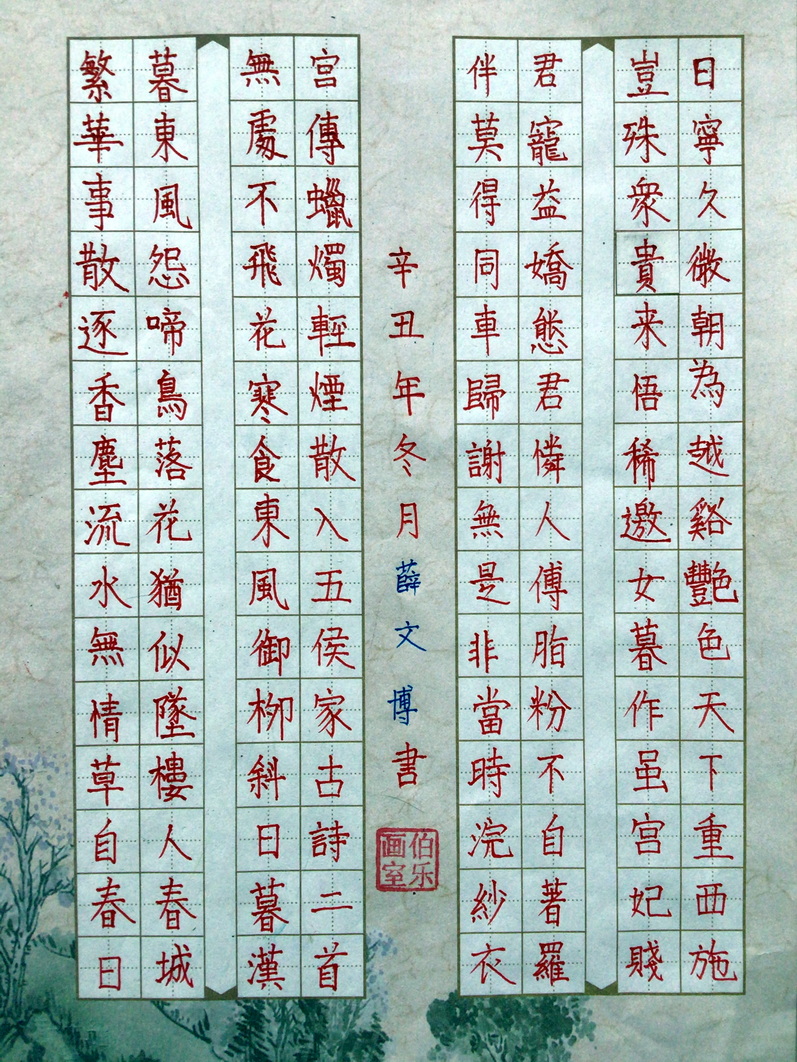 日寧久微朝為越谿艷色天下重西施
豈殊衆貴来悟稀邀女暮作虽宮妃賤
君寵益嬌態君憐人傅脂粉不自著羅
伴莫得同車歸謝無是非當時浣紗衣
辛丑年冬月薛文博書
伯乐画室
宮傳蠟燭輕煙散入五侯家古詩二首
無處不飛花寒食東風御柳斜日暮漢
暮東風怨啼鳥落花猶似墜樓人春城
繁華事散逐香塵流水無情草自春日